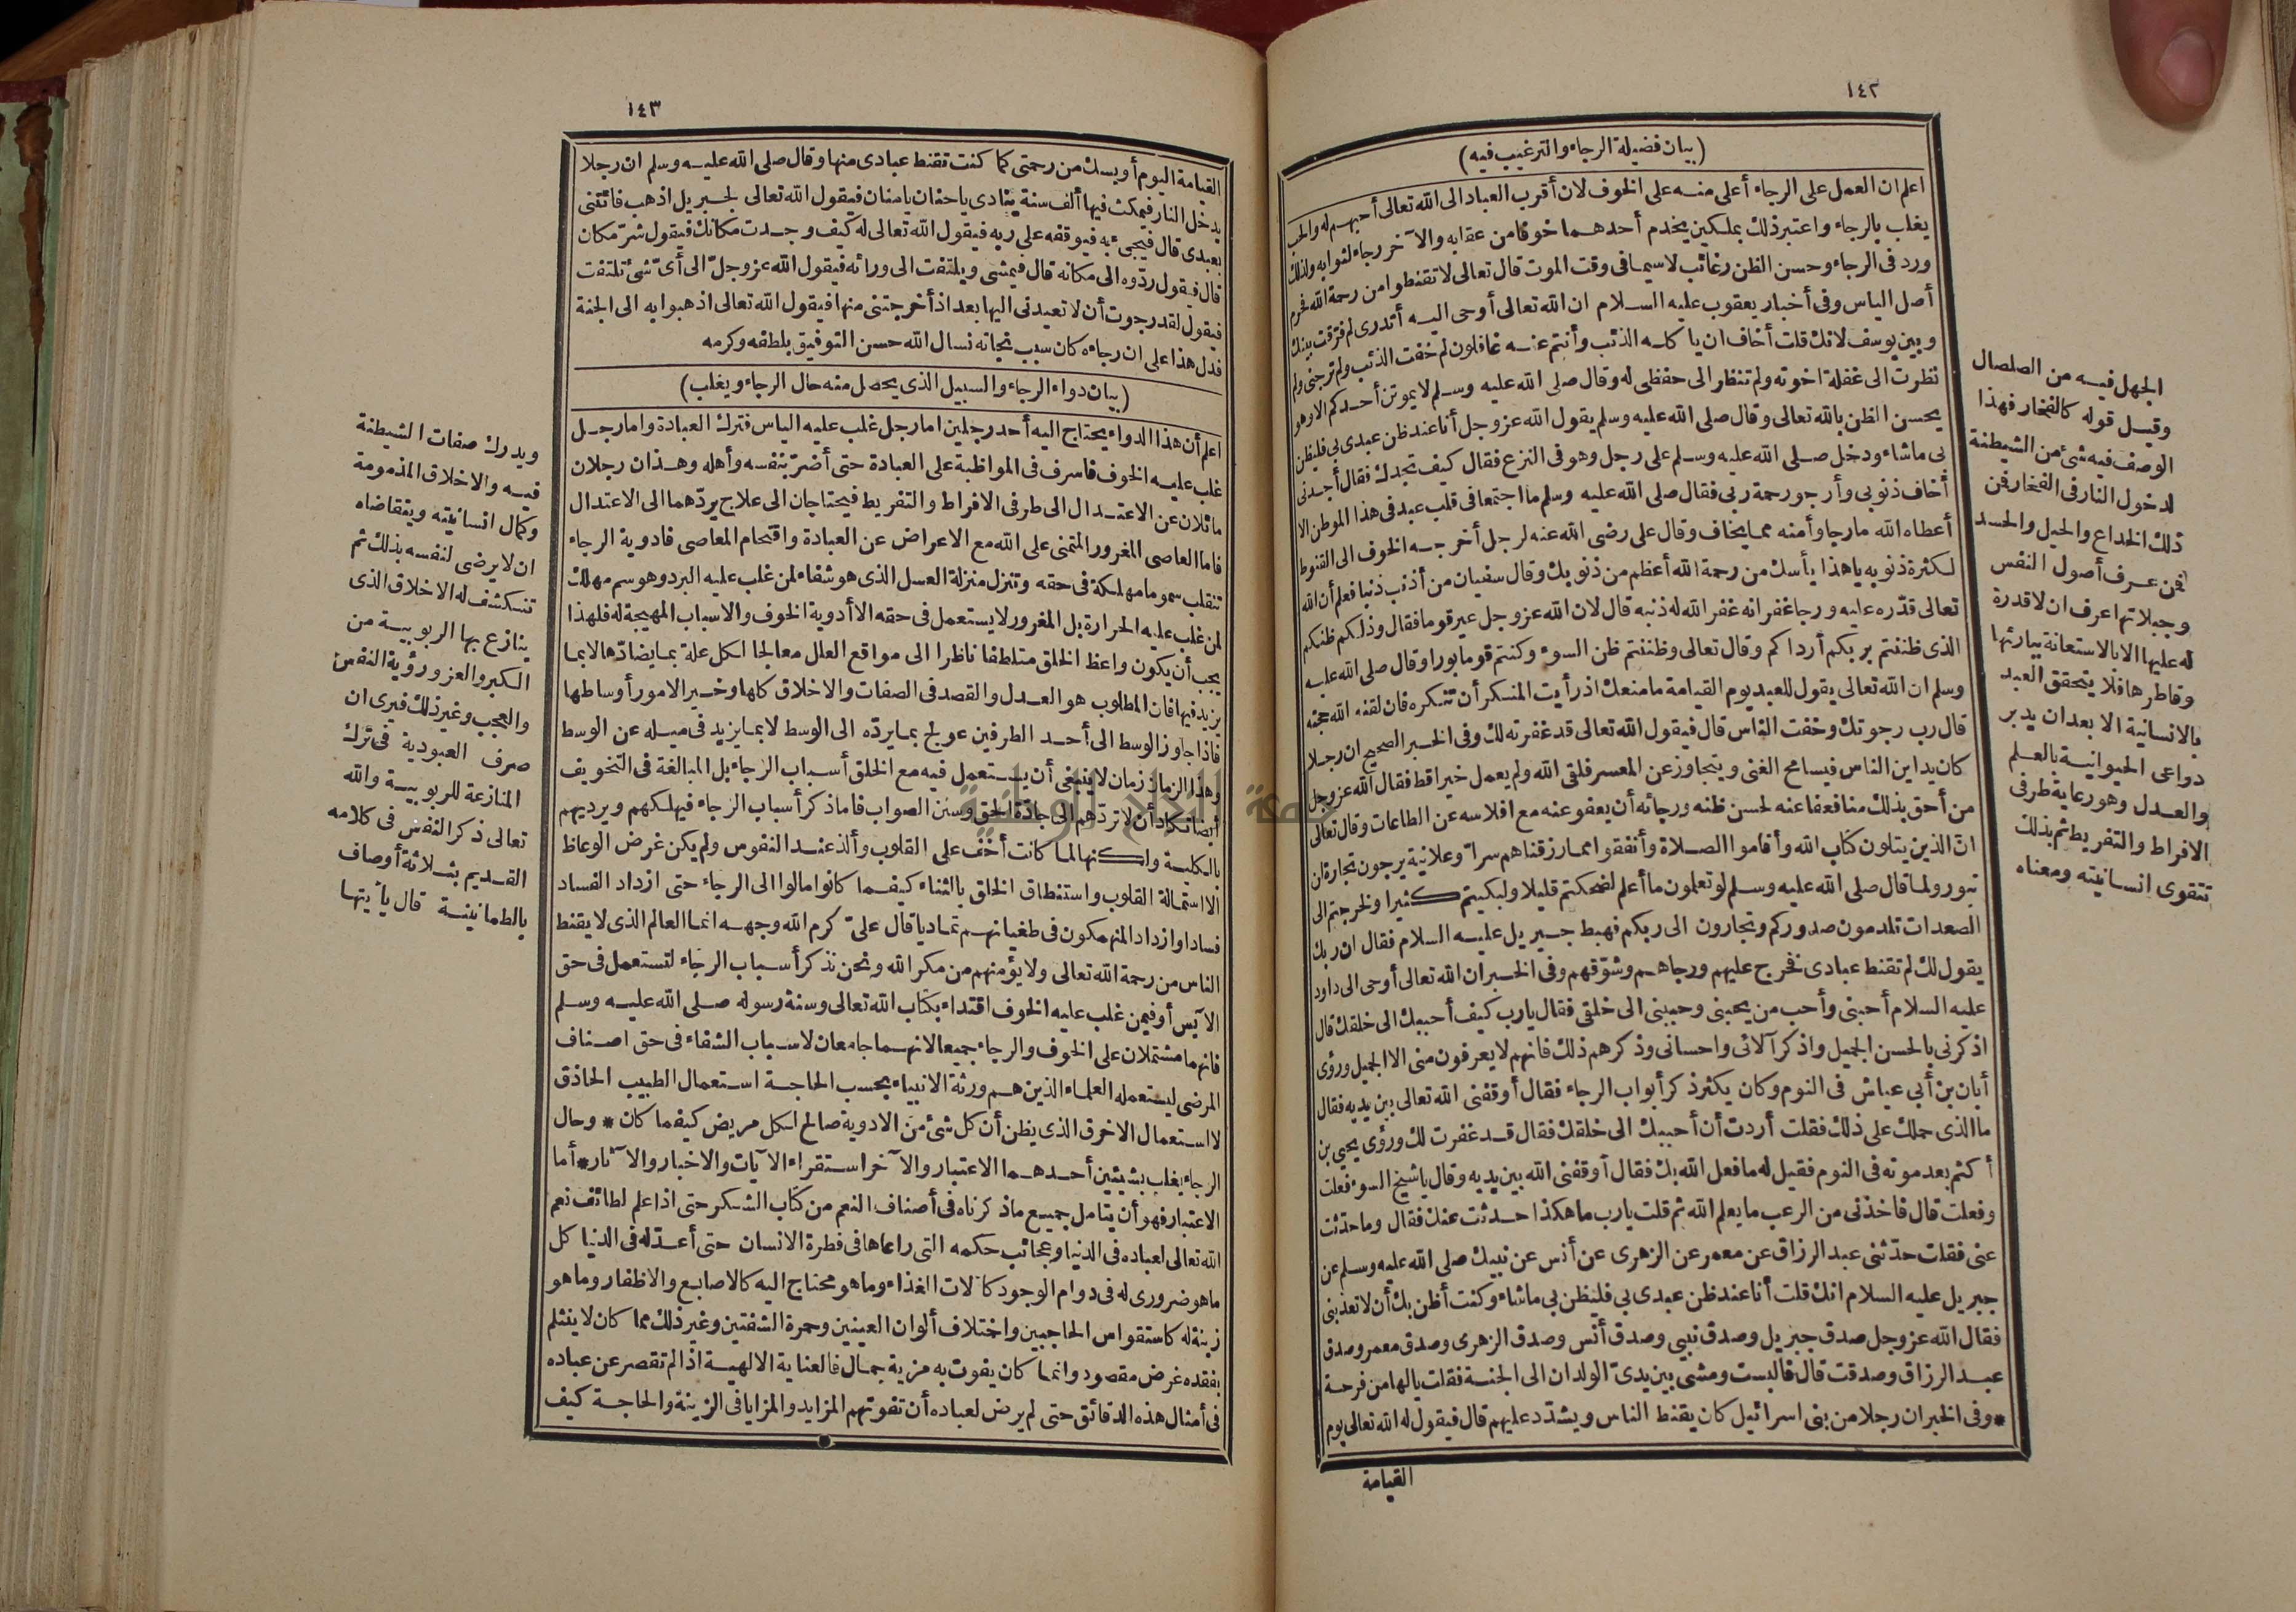 ١٤٢
(بيان فضيلة الرجاء والترغيب فيه)
اعلم ان العمل على الرجاء أعلى منه على الخوف لان أقرب العباد الى الله تعالى أحبهم له والحب
يغلب بالرجاء واعتبر ذلك بملكين يخدم أحدهما خوفا من عقابه والآخر رجاء لثوابه ولذلك
ورد فى الرجاء وحسن الظن رغائب لا سيما فى وقت الموت قال تعالى لا تقنطوا من رحمة الله فحرم
أصل الياس وفى أخبار يعقوب عليه السلام ان الله تعالى أوحى اليه أتدرى لم فرقت بينك
وبين يوسف لانك قلت أخاف ان يا كله الذئب وأنتم عنه غافلون لم خفت الذئب ولم ترجنى ولم
نظرت الى غفلة اخوته ولم تنظر الى حفظى له وقال صلى الله عليه وسلم لا يموتن أحدكم الا وهو
يحسن الظن بالله تعالى وقال صلى الله عليه وسلم يقول الله عز وجل أنا عند ظن عبدى بى فليظن
بى ما شاء ودخل صلى الله عليه وسلم على رجل وهو فى النزع فقال كيف تجدك فقال أجدنى
أخاف ذنوبى وأرجو رحمة ربى فقال صلى الله عليه وسلم ما اجتمعا فى قلب عبد فى هذا الموطن الا
أعطاه الله ما رجا وأمنه مما يخاف وقال على رضى الله عنه لرجل أخرجه الخوف الى القنوط
لكثرة ذنوبه يا هذا يأسك من رحمة الله أعظم من ذنوبك وقال سفيان من أذنب ذنبا فعلم أن الله
تعالى قدّره عليه ورجا غفرانه غفر الله له ذنبه قال لان الله عز وجل عير قوما فقال وذلكم ظنكم
الذى ظننتم بربكم أرداكم وقال تعالى وظننتم ظن السوء وكنتم قوما بورا وقال صلى الله عليه
وسلم ان الله تعالى يقول للعبد يوم القيامة ما منعك اذ رأيت المنكر أن تنكره فان لقنه الله حجته
قال رب رجوتك وخفت الناس قال فيقول الله تعالى قد غفرته لك وفى الخبر الصحيح ان رجلا
كان يداين الناس فيسامح الغنى ويتجاوز عن المعسر فلقى الله ولم يعمل خيرا قط فقال الله عز وجل
من أحق بذلك منا فعفا عنه لحسن ظنه ورجائه أن يعفو عنه مع افلاسه عن الطاعات وقال تعالى
انّ الذين يتلون كتاب الله وأقاموا الصلاة وأنفقوا مما رزقناهم سرّا وعلانية يرجون تجارة لن
تبور ولما قال صلى الله عليه وسلم لو تعلمون ما أعلم لضحكتم قليلا ولبكيتم كثيرا ولخرجتم الى
الصعدات تلدمون صدوركم وتجارون الى ربكم فهبط جبريل عليه السلام فقال ان ربك
يقول لك لم تقنط عبادى فخرج عليهم ورجاهم وشوّقهم وفى الخبر ان الله تعالى أوحى الى داود
عليه السلام أحبنى وأحب من يحبنى وحببنى الى خلقى فقال يا رب كيف أحببك الى خلقك قال
اذكرنى بالحسن الجميل واذكر آلائى واحسانى وذكرهم ذلك فانهم لا يعرفون منى الا الجميل ورؤى
أبان بن أبى عياش فى النوم وكان يكثر ذكر أبواب الرجاء فقال أوقفنى الله تعالى بين يديه فقال
ما الذى حملك على ذلك فقلت أردت أن أحببك الى خلقك فقال قد غفرت لك ورؤى يحيى بن
أكثم بعد موته فى النوم فقيل له ما فعل الله بك فقال أوقفنى الله بين يديه وقال يا شيخ السوء فعلت
وفعلت قال فاخذنى من الرعب ما يعلم الله ثم قلت يا رب ما هكذا حدثت عنك فقال وما حدّثت
عنى فقلت حدّثنى عبد الرزاق عن معمر عن الزهرى عن أنس عن نبيك صلى الله عليه وسلم عن
جبريل عليه السلام انك قلت أنا عند ظن عبدى بى فليظن بى ما شاء وكنت أظن بك أن لا تعذبنى
فقال الله عز وجل صدق جبريل وصدق نبيى وصدق أنس وصدق الزهرى وصدق معمر وصدق
عبد الرزاق وصدقت قال فالبست ومشى بين يدىّ الولدان الى الجنة فقلت يا لها من فرحة
* وفى الخبر ان رجلا من بنى اسرائيل كان يقنط الناس ويشدّد عليهم قال فيقول له الله تعالى يوم
القيامة
الجهل فيه من الصلصال
وقيل قوله كالفخار فهذا
الوصف فيه شئ من الشيطنة
لدخول النار فى الفخار فمن
ذلك الخداع والحيل والحسد
فمن عرف أصول النفس
وجبلاتها عرف ان لا قدرة
له عليها الا بالاستعانة ببارئها
وفاطرها فلا يتحقق العبد
بالانسانية الا بعد ان يدبر
دواعى الحيوانية بالعلم
والعدل وهو رعاية طرفى
الافراط والتفريط ثم بذلك
تتقوى انسانيته ومعناه
١٤٣
القيامة اليوم أويسك من رحمتى كما كنت تقنط عبادى منها وقال صلى الله عليه وسلم ان رجلا
يدخل النار فيمكث فيها ألف سنة ينادى يا حنان يا منان فيقول الله تعالى لجبريل اذهب فائتنى
بعبدى قال فيجىء به فيوقفه على ربه فيقول الله تعالى له كيف وجدت مكانك فيقول شرّ مكان
قال فيقول ردّوه الى مكانه قال فيمشى ويلتفت الى ورائه فيقول الله عز وجلّ الى أىّ شئ تلتفت
فيقول لقد رجوت أن لا تعيدنى اليها بعد اذ أخرجتنى منها فيقول الله تعالى اذهبوا به الى الجنة
فدل هذا على ان رجاءه كان سبب نجاته نسال الله حسن التوفيق بلطفه وكرمه
(بيان دواء الرجاء والسبيل الذى يحصل منه حال الرجاء ويغلب)
اعلم أن هذا الدواء يحتاج اليه أحد رجلين اما رجل غلب عليه الياس فترك العبادة واما رجل
غلب عليه الخوف فاسرف فى المواظبة على العبادة حتى أضرّ بنفسه وأهله وهذان رجلان
ماثلان عن الاعتدال الى طرفى الافراط والتفريط فيحتاجان الى علاج يردّهما الى الاعتدال
فاما العاصى المغرور المتمنى على الله مع الاعراض عن العبادة واقتحام المعاصى فادوية الرجاء
تنقلب سموما مهلكة فى حقه وتنزل منزلة العسل الذى هو شفاء لمن غلب عليه البرد وهو سم مهلك
لمن غلب عليه الحرارة بل المغرور لا يستعمل فى حقه الا أدوية الخوف والاسباب المهيجة له فلهذا
يجب أن يكون واعظ الخلق متلطفا ناظرا الى مواقع العلل معالجا لكل علة بما يضادّها لا بما
يزيد فيها فان المطلوب هو العدل والقصد فى الصفات والاخلاق كلها وخير الامور أوساطها
فاذا جاوز الوسط الى أحد الطرفين عولج بما يردّه الى الوسط لا بما يزيد فى ميله عن الوسط
وهذا الزمان زمان لا ينبغى أن يستعمل فيه مع الخلق أسباب الرجاء بل المبالغة فى التخويف
أيضا تكاد أن لا تردّهم الى جادّة الحق وسنن الصواب فاما ذكر أسباب الرجاء فيهلكهم ويرديهم
بالكلية ولكنها لما كانت أخف على القلوب وألذ عند النفوس ولم يكن غرض الوعاظ
الا استمالة القلوب واستنطاق الخلق بالثناء كيفما كانوا مالوا الى الرجاء حتى ازداد الفساد
فسادا وازداد المنهمكون فى طغيانهم تماديا قال علىّ كرم الله وجهه انما العالم الذى لا يقنط
الناس من رحمة الله تعالى ولا يؤمنهم من مكر الله ونحن نذكر أسباب الرجاء لتستعمل فى حق
الآيس أو فيمن غلب عليه الخوف اقتداء بكتاب الله تعالى وسنة رسوله صلى الله عليه وسلم
فانهما مشتملان على الخوف والرجاء جميعا لانهما جامعان لاسباب الشفاء فى حق اصناف
المرضى ليستعمله العلماء الذين هم ورثة الانبياء بحسب الحاجة استعمال الطبيب الحاذق
لا استعمال الاخرق الذى يظن أن كل شئ من الادوية صالح لكل مريض كيفما كان * وحال
الرجاء يغلب بشيئين أحدهما الاعتبار والآخر استقراء الآيات والاخبار والآثار * أما
الاعتبار فهو أن يتامل جميع ماذكرناه فى أصناف النعم من كتاب الشكر حتى اذا علم لطائف نعم
الله تعالى لعباده فى الدنيا وعجائب حكمه التى راعاها فى فطرة الانسان حتى أعدّ له فى الدنيا كل
ما هو ضرورى له فى دوام الوجود كآلات الغذاء وما هو محتاج اليه كالاصابع والاظفار وما هو
زينة له كاستقواس الحاجبين واختلاف ألوان العينين وحمرة الشفتين وغير ذلك مما كان لا ينثلم
بفقده غرض مقصود وانما كان يفوت به مزية جمال فالعناية الالهية اذا لم تقصر عن عباده
فى أمثال هذه الدقائق حتى لم يرض لعباده أن تفوتهم المزايد والمزايا فى الزينة والحاجة كيف
ويدرك صفات الشيطنة
فيه والاخلاق المذمومة
وكمال انسانيته ويتقاضاه
ان لا يرضى لنفسه بذلك ثم
تنكشف له الاخلاق الذى
ينازع بها الربوبية من
الكبر والعز ورؤية النفس
والعجب وغير ذلك فيرى ان
صرف العبودية فى ترك
المنازعة للربوبية والله
تعالى ذكر النفس فى كلامه
القديم بثلاثة أوصاف
بالطمانينة قال يا أيتها